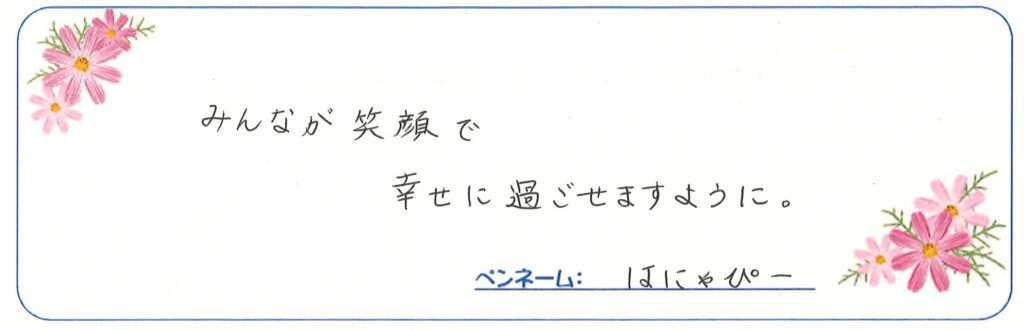 みんなが笑顔で
幸せに過ごせますように。
ペンネーム: はにゃぴー